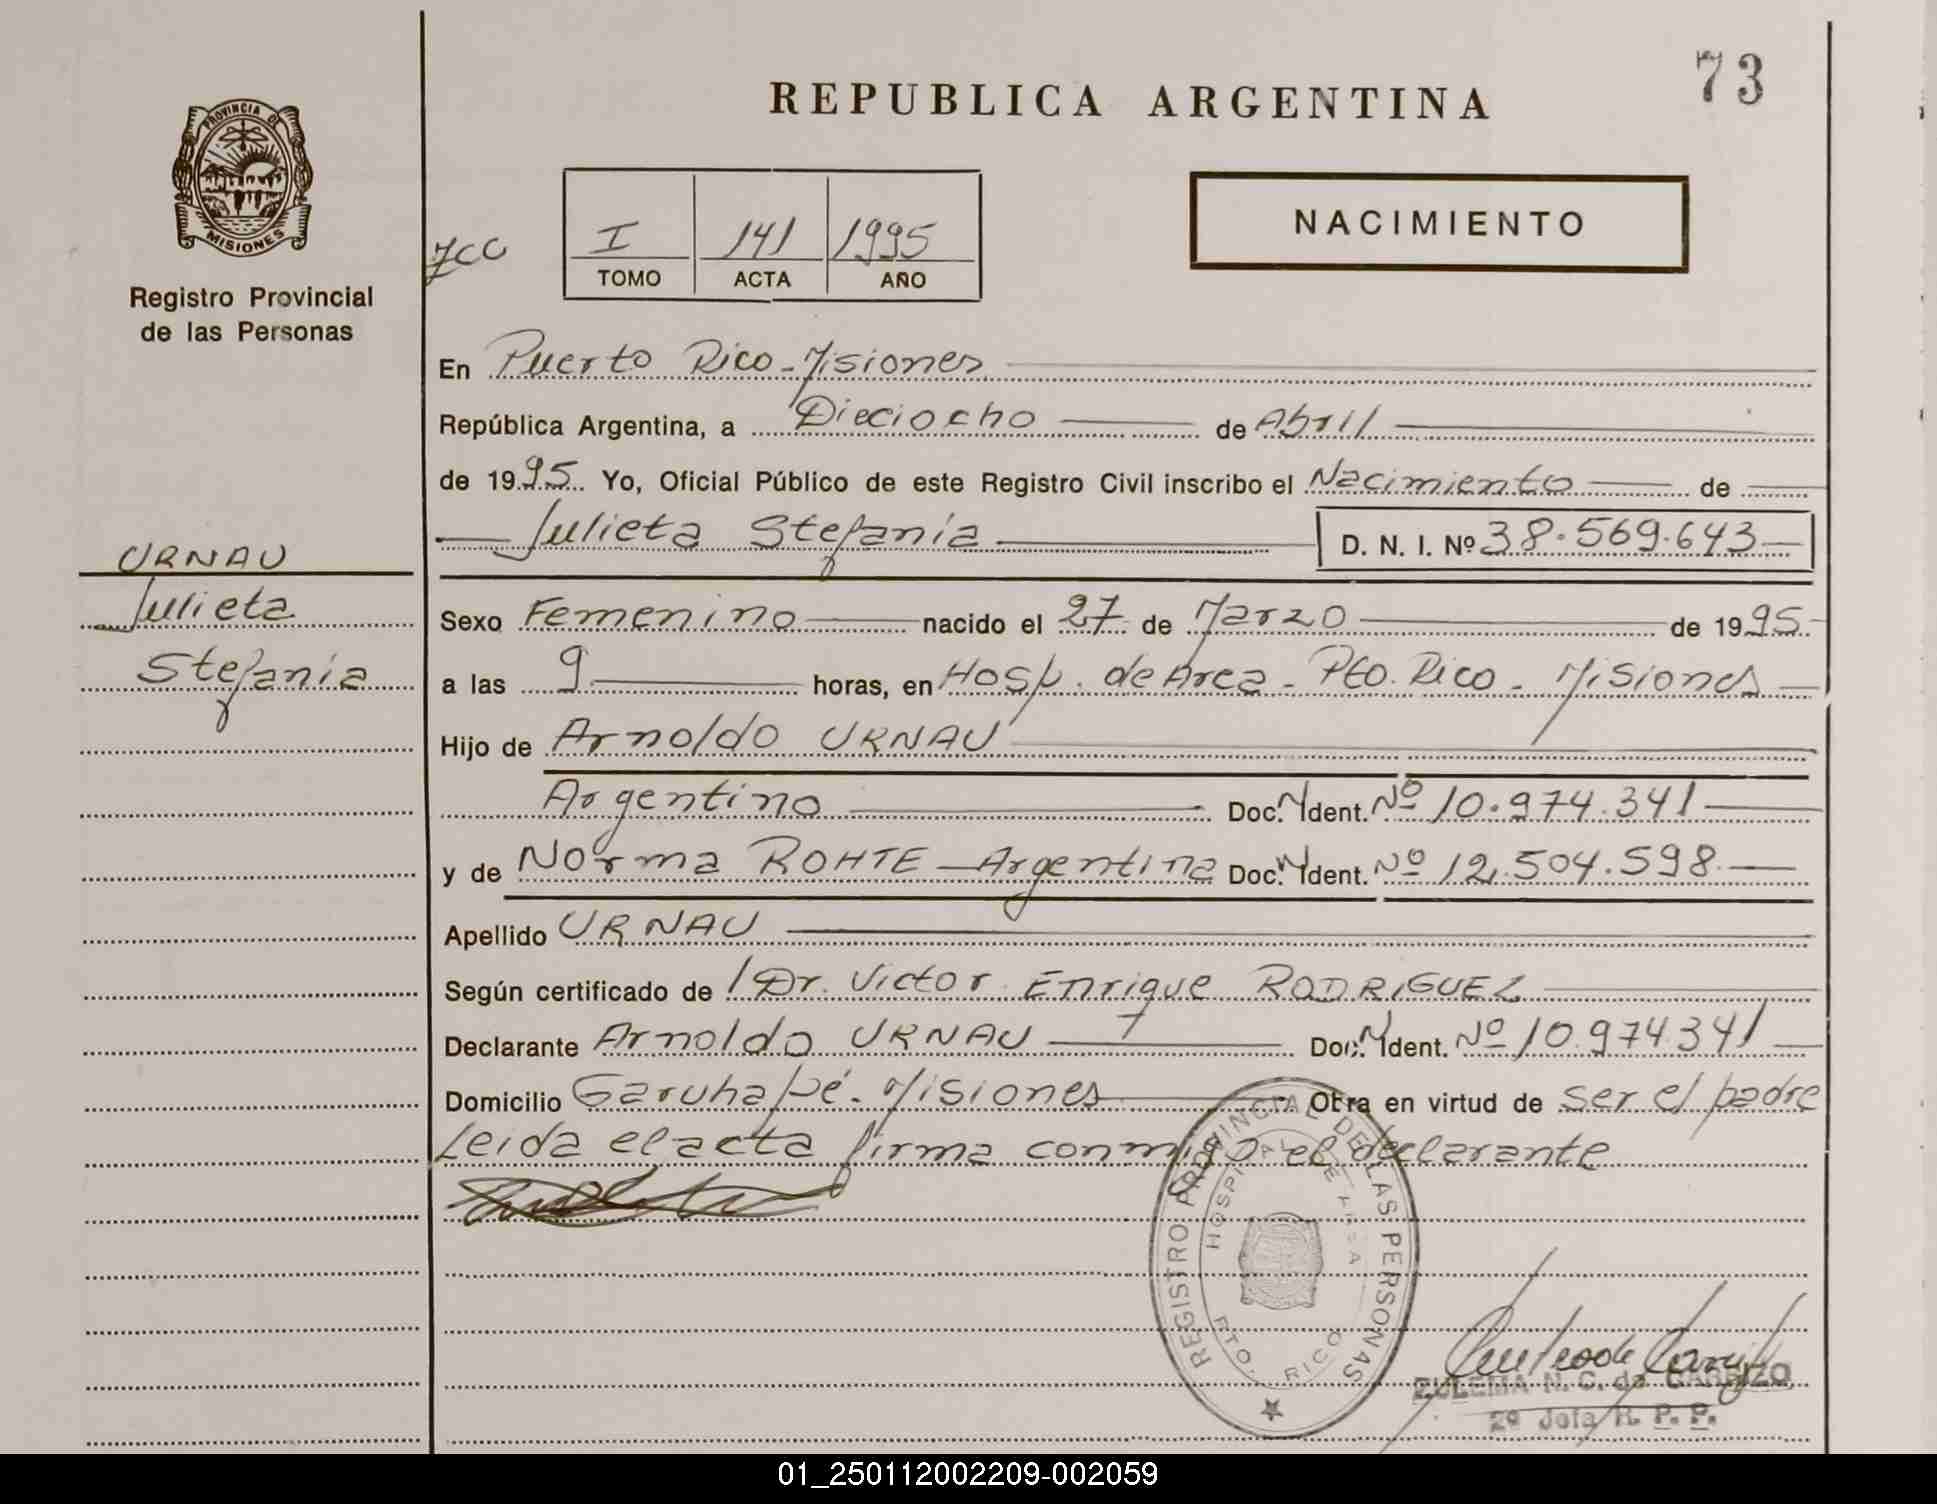 73
REPUBLICA ARGENTINA
PROVINCIA DE
MISIONES
Registro Provincial
de las Personas
NACIMIENTO
I 141 1995
TOMO ACTA AÑO
En Puerto Rico - Misiones
República Argentina, a Dieciocho de Abril
de 1995 Yo, Oficial Público de este Registro Civil inscribo el Nacimiento de
Julieta Stefanía D. N. I. Nº 38.569.643
URNAU
Julieta
Stefanía
Sexo Femenino nacido el 27 de Marzo de 1995
a las 9 horas, en Hosp. de Area - Pto. Rico - Misiones
Hijo de Arnoldo URNAU
Argentino Doc. Ident. Nº 10.974.341
y de Norma ROHTE - Argentina Doc. Ident. Nº 12.504.598
Apellido URNAU
Según certificado de Dr. Victor Enrique RODRIGUEZ
Declarante Arnoldo URNAU Doc. Ident. Nº 10.974.341
Domicilio Garuhapé - Misiones Otra en virtud de ser el padre
Leida el acta firma conmigo el declarante
REGISTRO PROVINCIAL DE LAS PERSONAS
HOSPITAL DE AREA
PTO. RICO
ZULEMA N. C. de CARRIZO
2º Jefa R. P. P.
01_250112002209-002059